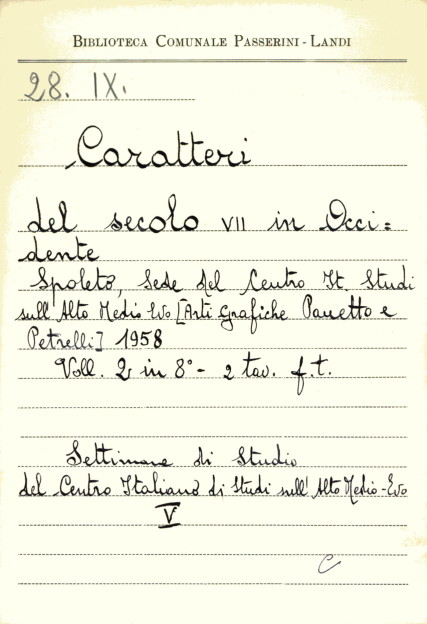 BIBLIOTECA COMUNALE PASSERINI - LANDI
28. IX.
Caratteri
del secolo VII in Occi=
dente
Spoleto, Sede del Centro It. Studi
sull'Alto Medio Evo [Arti Grafiche Panetto e
Petrelli] 1958
Voll. 2 in 8° - 2 tav. f.t.
Settimane di Studio
del Centro Italiano di Studi sull'Alto Medio-Evo
V
C